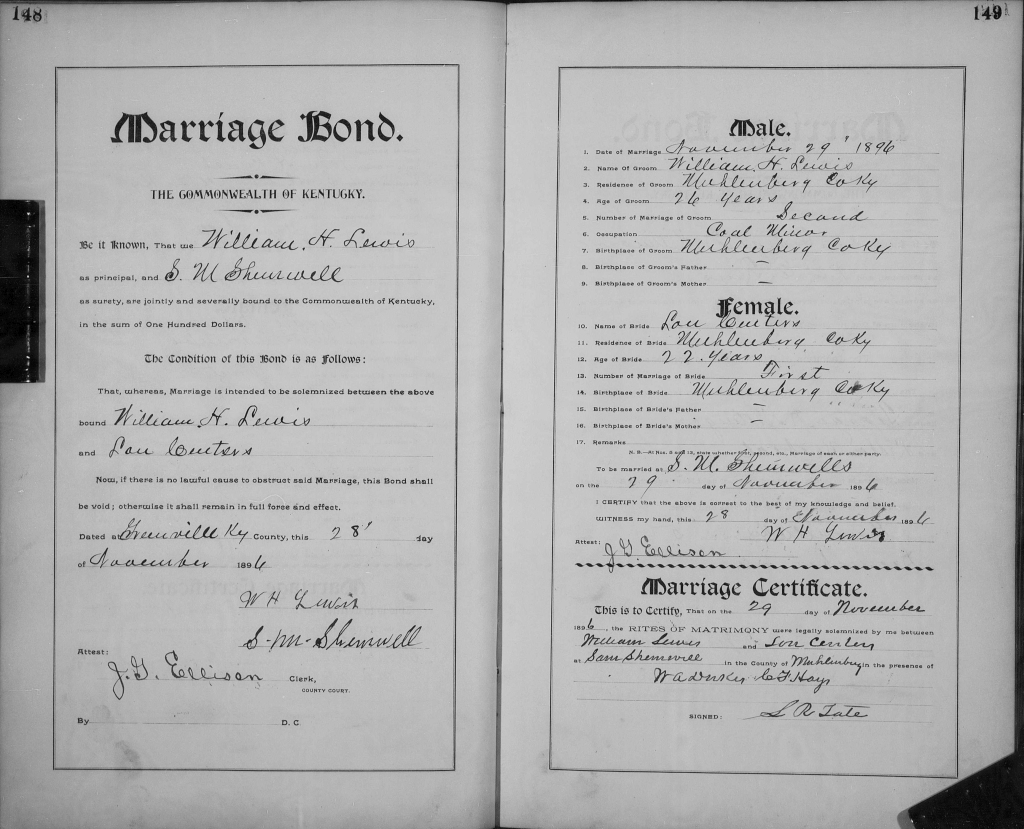 148
Marriage Bond.
THE COMMONWEALTH OF KENTUCKY.
Be it Known, That we William H. Lewis
as principal, and S. M Shemwell
as surety, are jointly and severally bound to the Commonwealth of Kentucky,
in the sum of One Hundred Dollars.
The Condition of this Bond is as Follows:
That, whereas, Marriage is intended to be solemnized between the above
bound William H. Lewis
and Lou Centers
Now, if there is no lawful cause to obstruct said Marriage, this Bond shall
be void; otherwise it shall remain in full force and effect.
Dated at Greenville Ky County, this 28' day
of November 1896
W H Lewis
S. M. Shemwell
Attest:
J. G. Ellison Clerk,
COUNTY COURT.
By D. C.
149
Male.
1. Date of Marriage November 29' 1896
2. Name of Groom William H. Lewis
3. Residence of Groom Muhlenberg Co Ky
4. Age of Groom 26 Years
5. Number of Marriage of Groom Second
6. Occupation Coal Minor
7. Birthplace of Groom Muhlenberg Co Ky
8. Birthplace of Groom's Father –
9. Birthplace of Groom's Mother –
Female.
10. Name of Bride Lou Centers
11. Residence of Bride Muhlenberg Co Ky
12. Age of Bride 22 Years
13. Number of Marriage of Bride First
14. Birthplace of Bride Muhlenberg Co Ky
15. Birthplace of Bride's Father –
16. Birthplace of Bride's Mother –
17. Remarks
N. B.—At Nos. 5 and 13, state whether first, second, etc., Marriage of each or either party.
To be married at S. M. Shemwells
on the 29 day of November 1896
I CERTIFY that the above is correct to the best of my knowledge and belief.
WITNESS my hand, this 28 day of November 1896
W H Lewis
Attest:
J G Ellison
Marriage Certificate.
This is to Certify, That on the 29 day of November
1896, the RITES OF MATRIMONY were legally solemnized by me between
William Lewis and Lou Centers
at Sam Shemwell in the County of Muhlenberg in the presence of
C F Hays
SIGNED: S R Tate